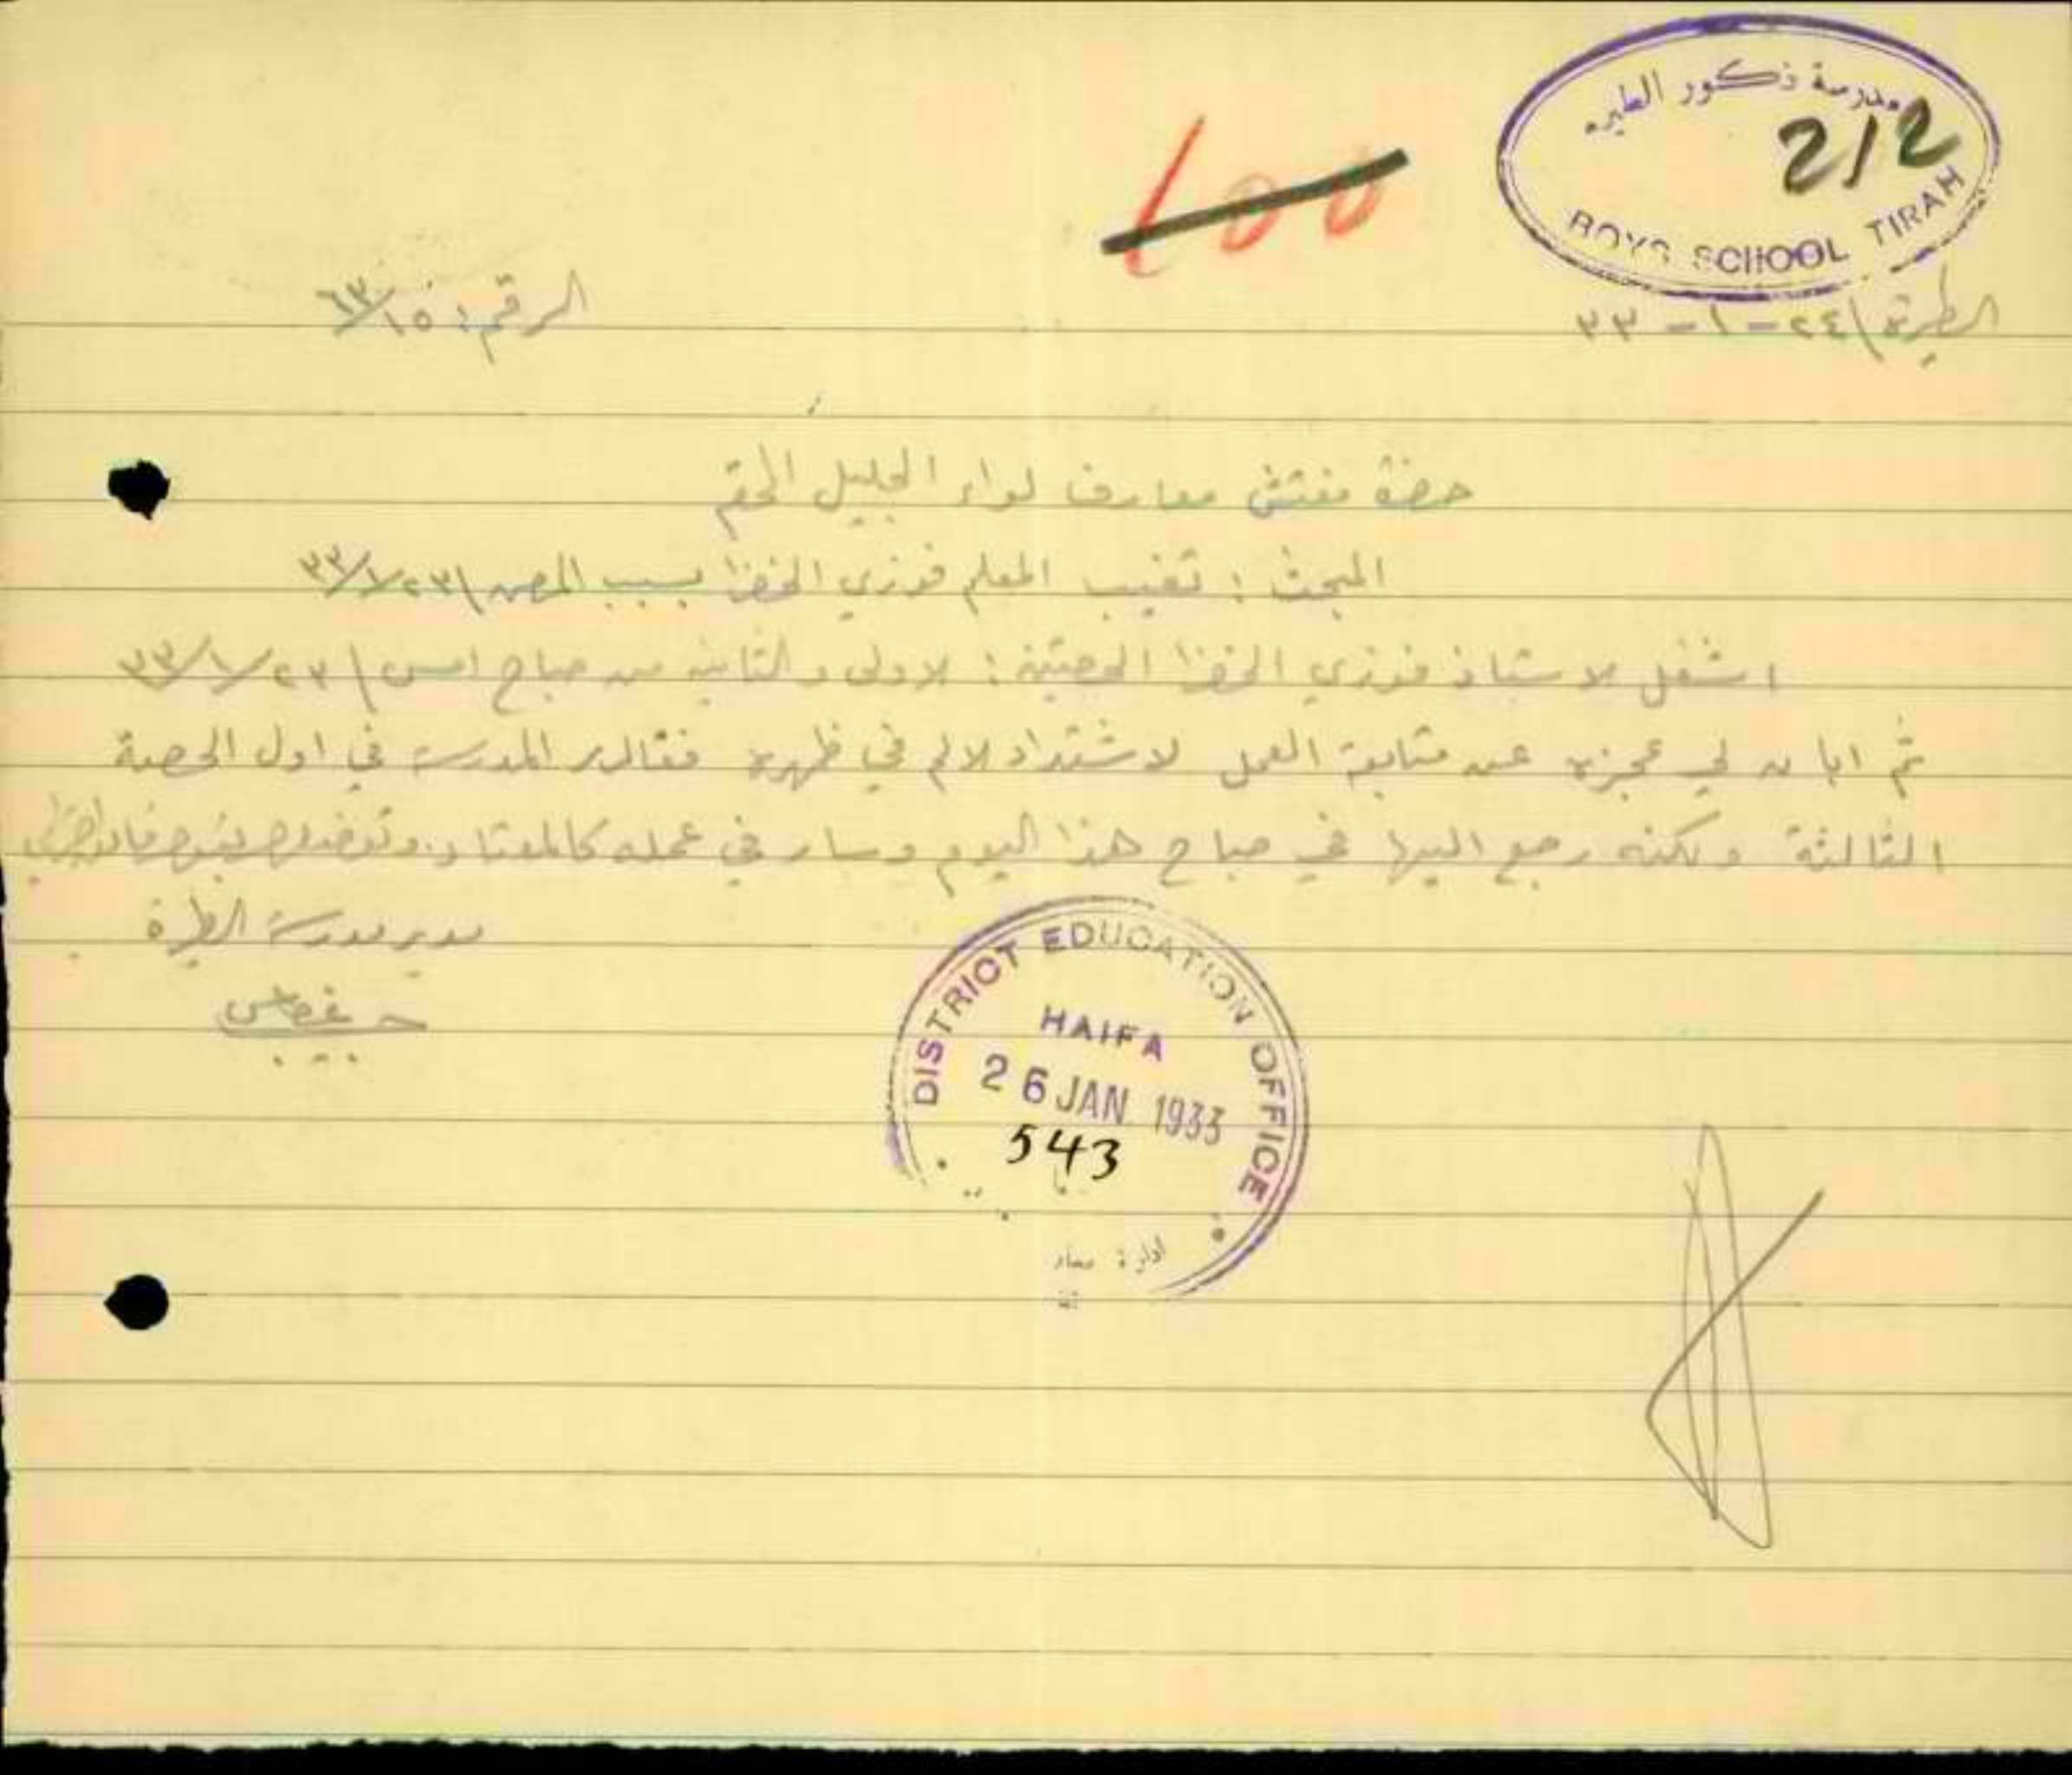 مدرسة ذكور الطيره
212
BOYS SCHOOL TIRAH
600
الطيرة ٢٤ - ١ - ٣٣
الرقم: ٦٣/١٥
حضرة مفتش معارف لواء الجليل المحترم
المبحث: تغيب المعلم فوزي الخضرا بسبب المرض ٢٣/١/٣٣
اشتغل الاستاذ فوزي الخضرا الحصتين: الاولى والثانية من صباح امس ٢٣/١/٣٣
ثم ابان لي عجزه عن متابعة العمل لاشتداد الالم في ظهره فغادر المدرسة في اول الحصة
الثالثة ولكنه رجع اليها في صباح هذا اليوم وسار في عمله كالمعتاد. وتفضلوا بقبول فائق احترامي
مدير مدرسة الطيرة
DISTRICT EDUCATION OFFICE
HAIFA
26 JAN 1933
543
ادارة معار